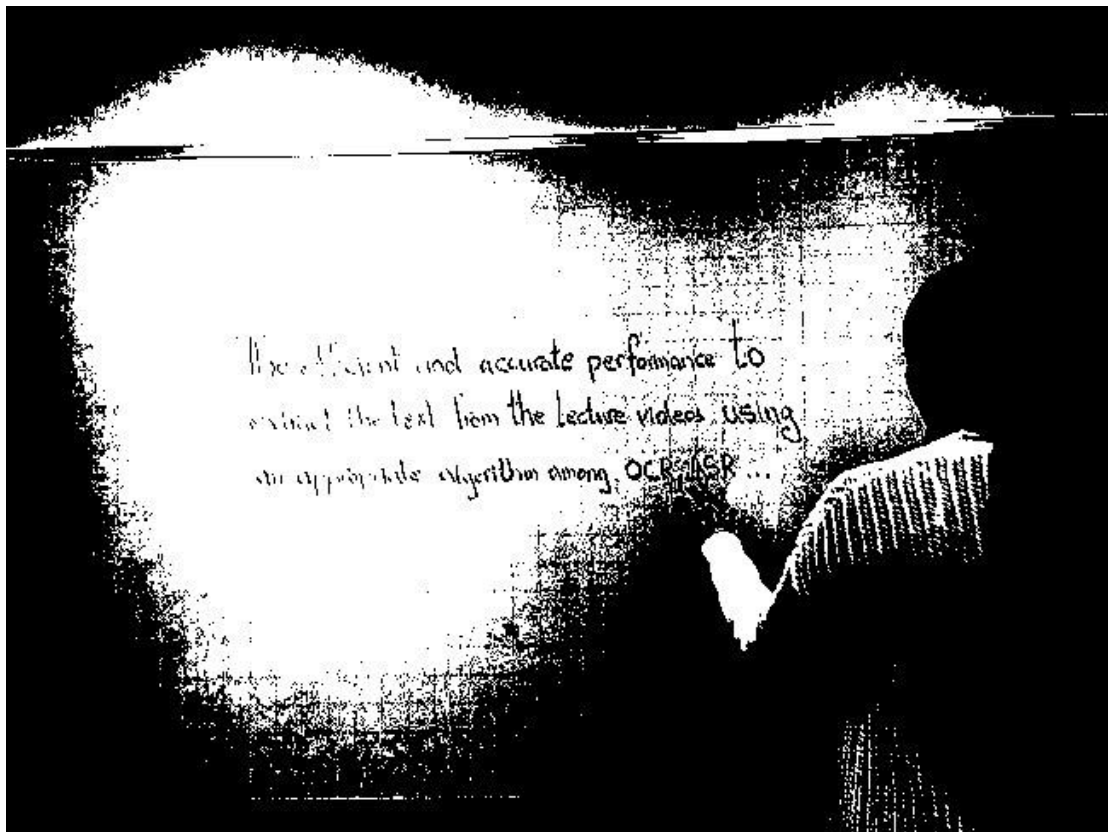 The efficient and accurate performance to
extract the text from the Lecture videos using
an appropriate algorithm among, OCR, ASR ...